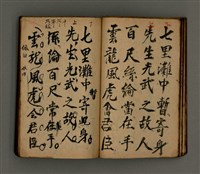 七里灘中暫寄身
先生光武之故人
百尺絲綸當在手
雲龍風虎公君臣
七里灘中寄此身
先生光武之故人
絲綸百尺常在手
雲龍風虎公君臣